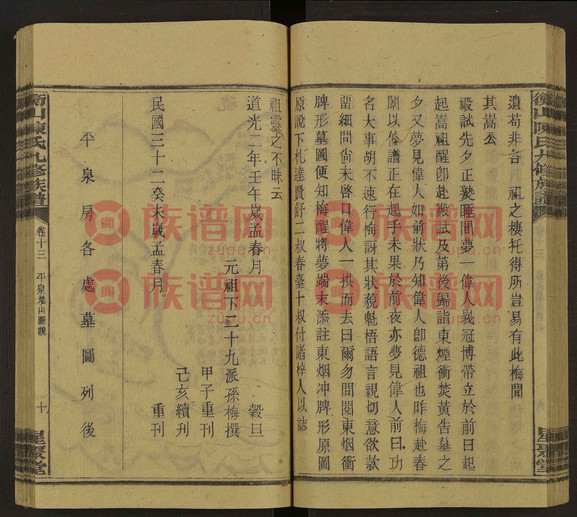 遺荀非吾 祖之棲托得所豈易有此梅聞
其嵩公
殿試先夕正甦睡間夢一偉人峩冠博帶立於前曰起
起嵩祖醒卽赴殿試及第後歸詣東煙衝焚黃告墓之
夕又夢見偉人如前狀乃知偉人卽德祖也昨梅赴春
闈以修譜正在起手未果於前夜亦夢見偉人曰功
名大事胡不速行梅訝其狀貌魁梧語言親切意欲款
留細問尙未啓口偉人一拱而去曰爾勿間閱東烟衝
牌形墓圖便知梅醒將夢端末添註東烟冲牌形原圖
原說下札達賢舒二叔春臺十叔付諸梓人以誌
祖靈之不昧云
道光二年壬午歲孟春月 穀旦
元祖下二十九派孫梅撰
甲子重刊
己亥續刋
民國三十二癸未歲孟春月 重刊
平泉房各處墓圖列後
衡山陳氏九修族譜
卷十三 平泉墓山圖說
十
星聚堂
族谱网
zupu.cn